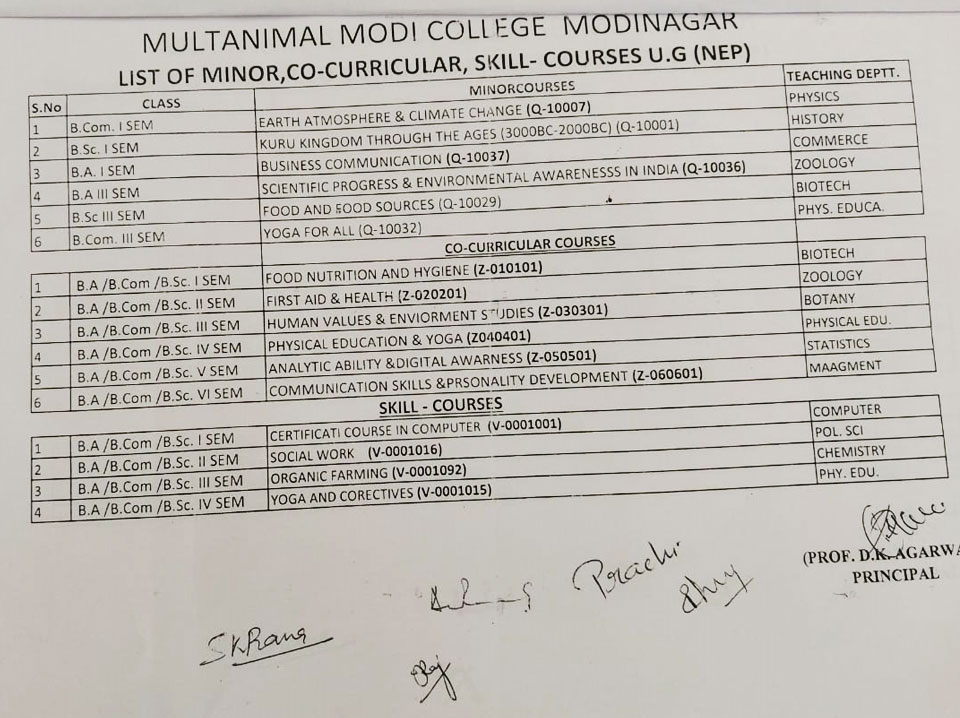 MULTANIMAL MODI COLLEGE MODINAGAR
LIST OF MINOR,CO-CURRICULAR, SKILL- COURSES U.G (NEP)
S.No CLASS MINORCOURSES TEACHING DEPTT.
1 B.Com. I SEM EARTH ATMOSPHERE & CLIMATE CHANGE (Q-10007) PHYSICS
2 B.Sc. I SEM KURU KINGDOM THROUGH THE AGES (3000BC-2000BC) (Q-10001) HISTORY
3 B.A. I SEM BUSINESS COMMUNICATION (Q-10037) COMMERCE
4 B.A III SEM SCIENTIFIC PROGRESS & ENVIRONMENTAL AWARENESSS IN INDIA (Q-10036) ZOOLOGY
5 B.Sc III SEM FOOD AND FOOD SOURCES (Q-10029) BIOTECH
6 B.Com. III SEM YOGA FOR ALL (Q-10032) PHYS. EDUCA.
CO-CURRICULAR COURSES
1 B.A /B.Com /B.Sc. I SEM FOOD NUTRITION AND HYGIENE (Z-010101) BIOTECH
2 B.A /B.Com /B.Sc. II SEM FIRST AID & HEALTH (Z-020201) ZOOLOGY
3 B.A /B.Com /B.Sc. III SEM HUMAN VALUES & ENVIORMENT STUDIES (Z-030301) BOTANY
4 B.A /B.Com /B.Sc. IV SEM PHYSICAL EDUCATION & YOGA (Z040401) PHYSICAL EDU.
5 B.A /B.Com /B.Sc. V SEM ANALYTIC ABILITY &DIGITAL AWARNESS (Z-050501) STATISTICS
6 B.A /B.Com /B.Sc. VI SEM COMMUNICATION SKILLS &PRSONALITY DEVELOPMENT (Z-060601) MAAGMENT
SKILL - COURSES
1 B.A /B.Com /B.Sc. I SEM CERTIFICATI COURSE IN COMPUTER (V-0001001) COMPUTER
2 B.A /B.Com /B.Sc. II SEM SOCIAL WORK (V-0001016) POL. SCI
3 B.A /B.Com /B.Sc. III SEM ORGANIC FARMING (V-0001092) CHEMISTRY
4 B.A /B.Com /B.Sc. IV SEM YOGA AND CORECTIVES (V-0001015) PHY. EDU.
(PROF. D.K. AGARWA
PRINCIPAL
Prachi
SKRana